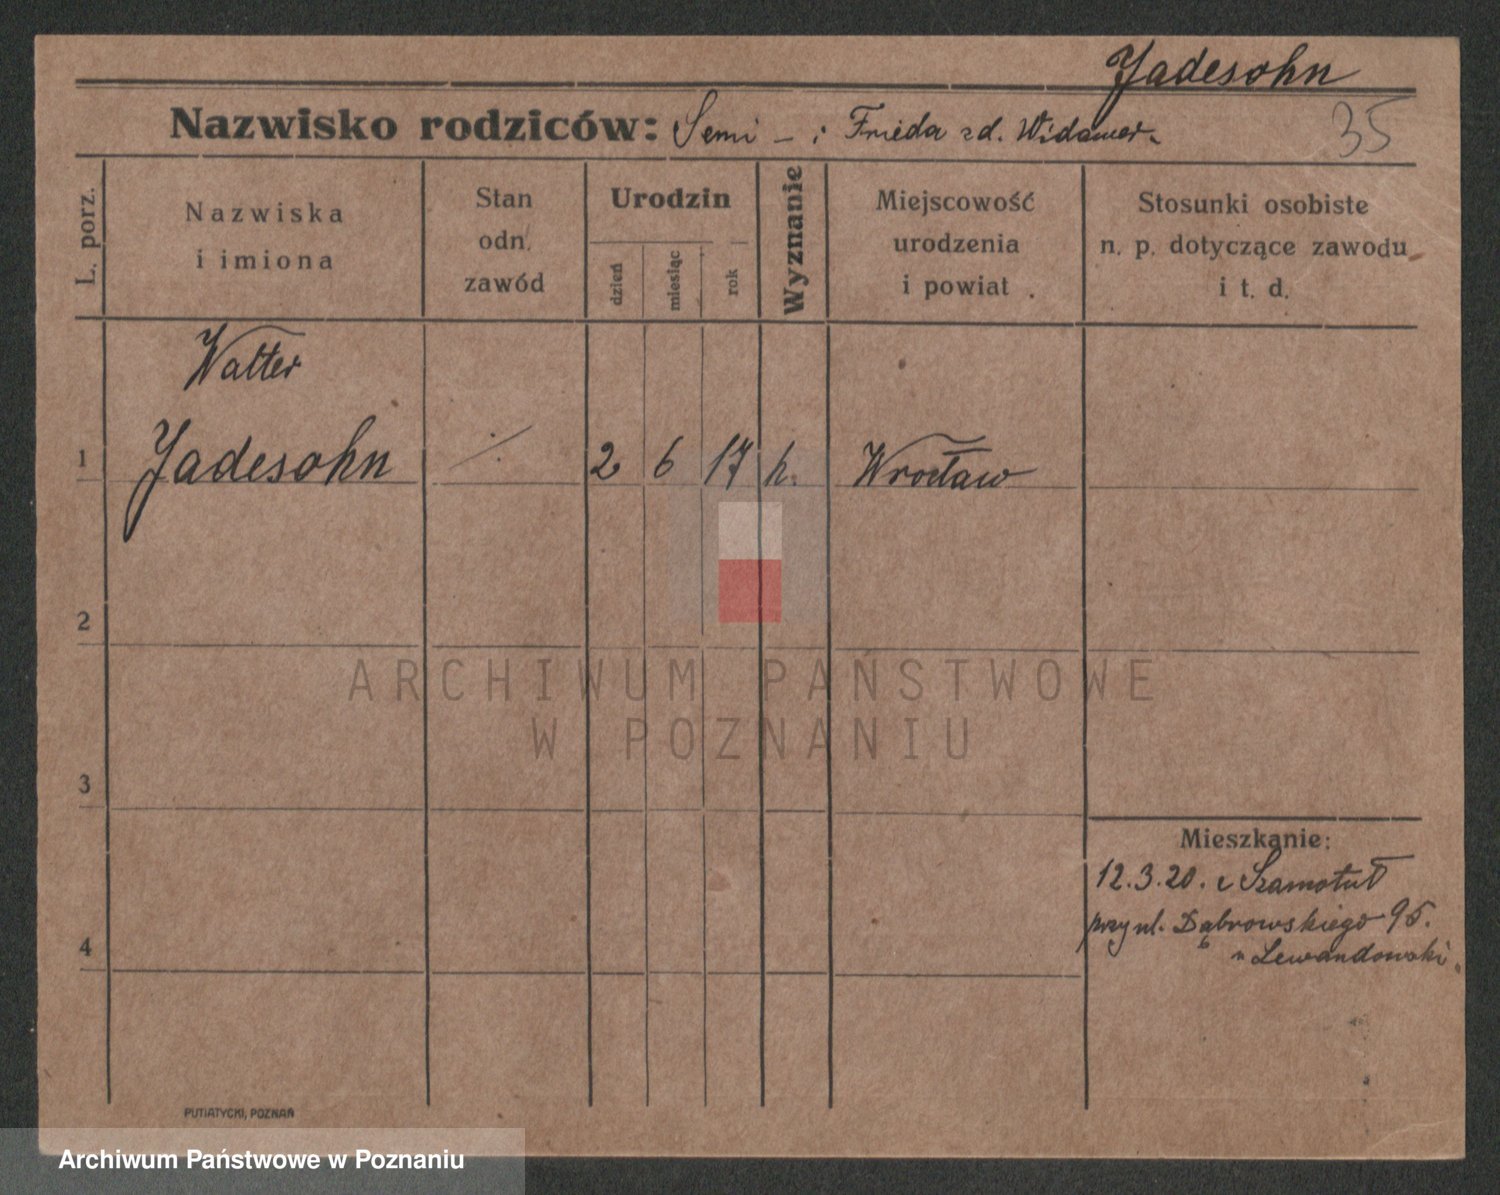 Jadesohn
Nazwisko rodziców: Semi – i Frieda zd. Widawer.
35
L. porz.
Nazwiska
i imiona
Stan
odn.
zawód
Urodzin
dzień
miesiąc
rok
Wyznanie
Miejscowość
urodzenia
i powiat .
Stosunki osobiste
n. p. dotyczące zawodu
i t. d.
Walter
1 Jadesohn ·/· 2 6 17 h. Wrocław
2
ARCHIWUM PAŃSTWOWE
W POZNANIU
3
Mieszkanie:
12.3.20. z Szamotuł
przy ul. Dąbrowskiego 95.
Lewandowski.
4
PUTIATYCKI, POZNAŃ
Archiwum Państwowe w Poznaniu